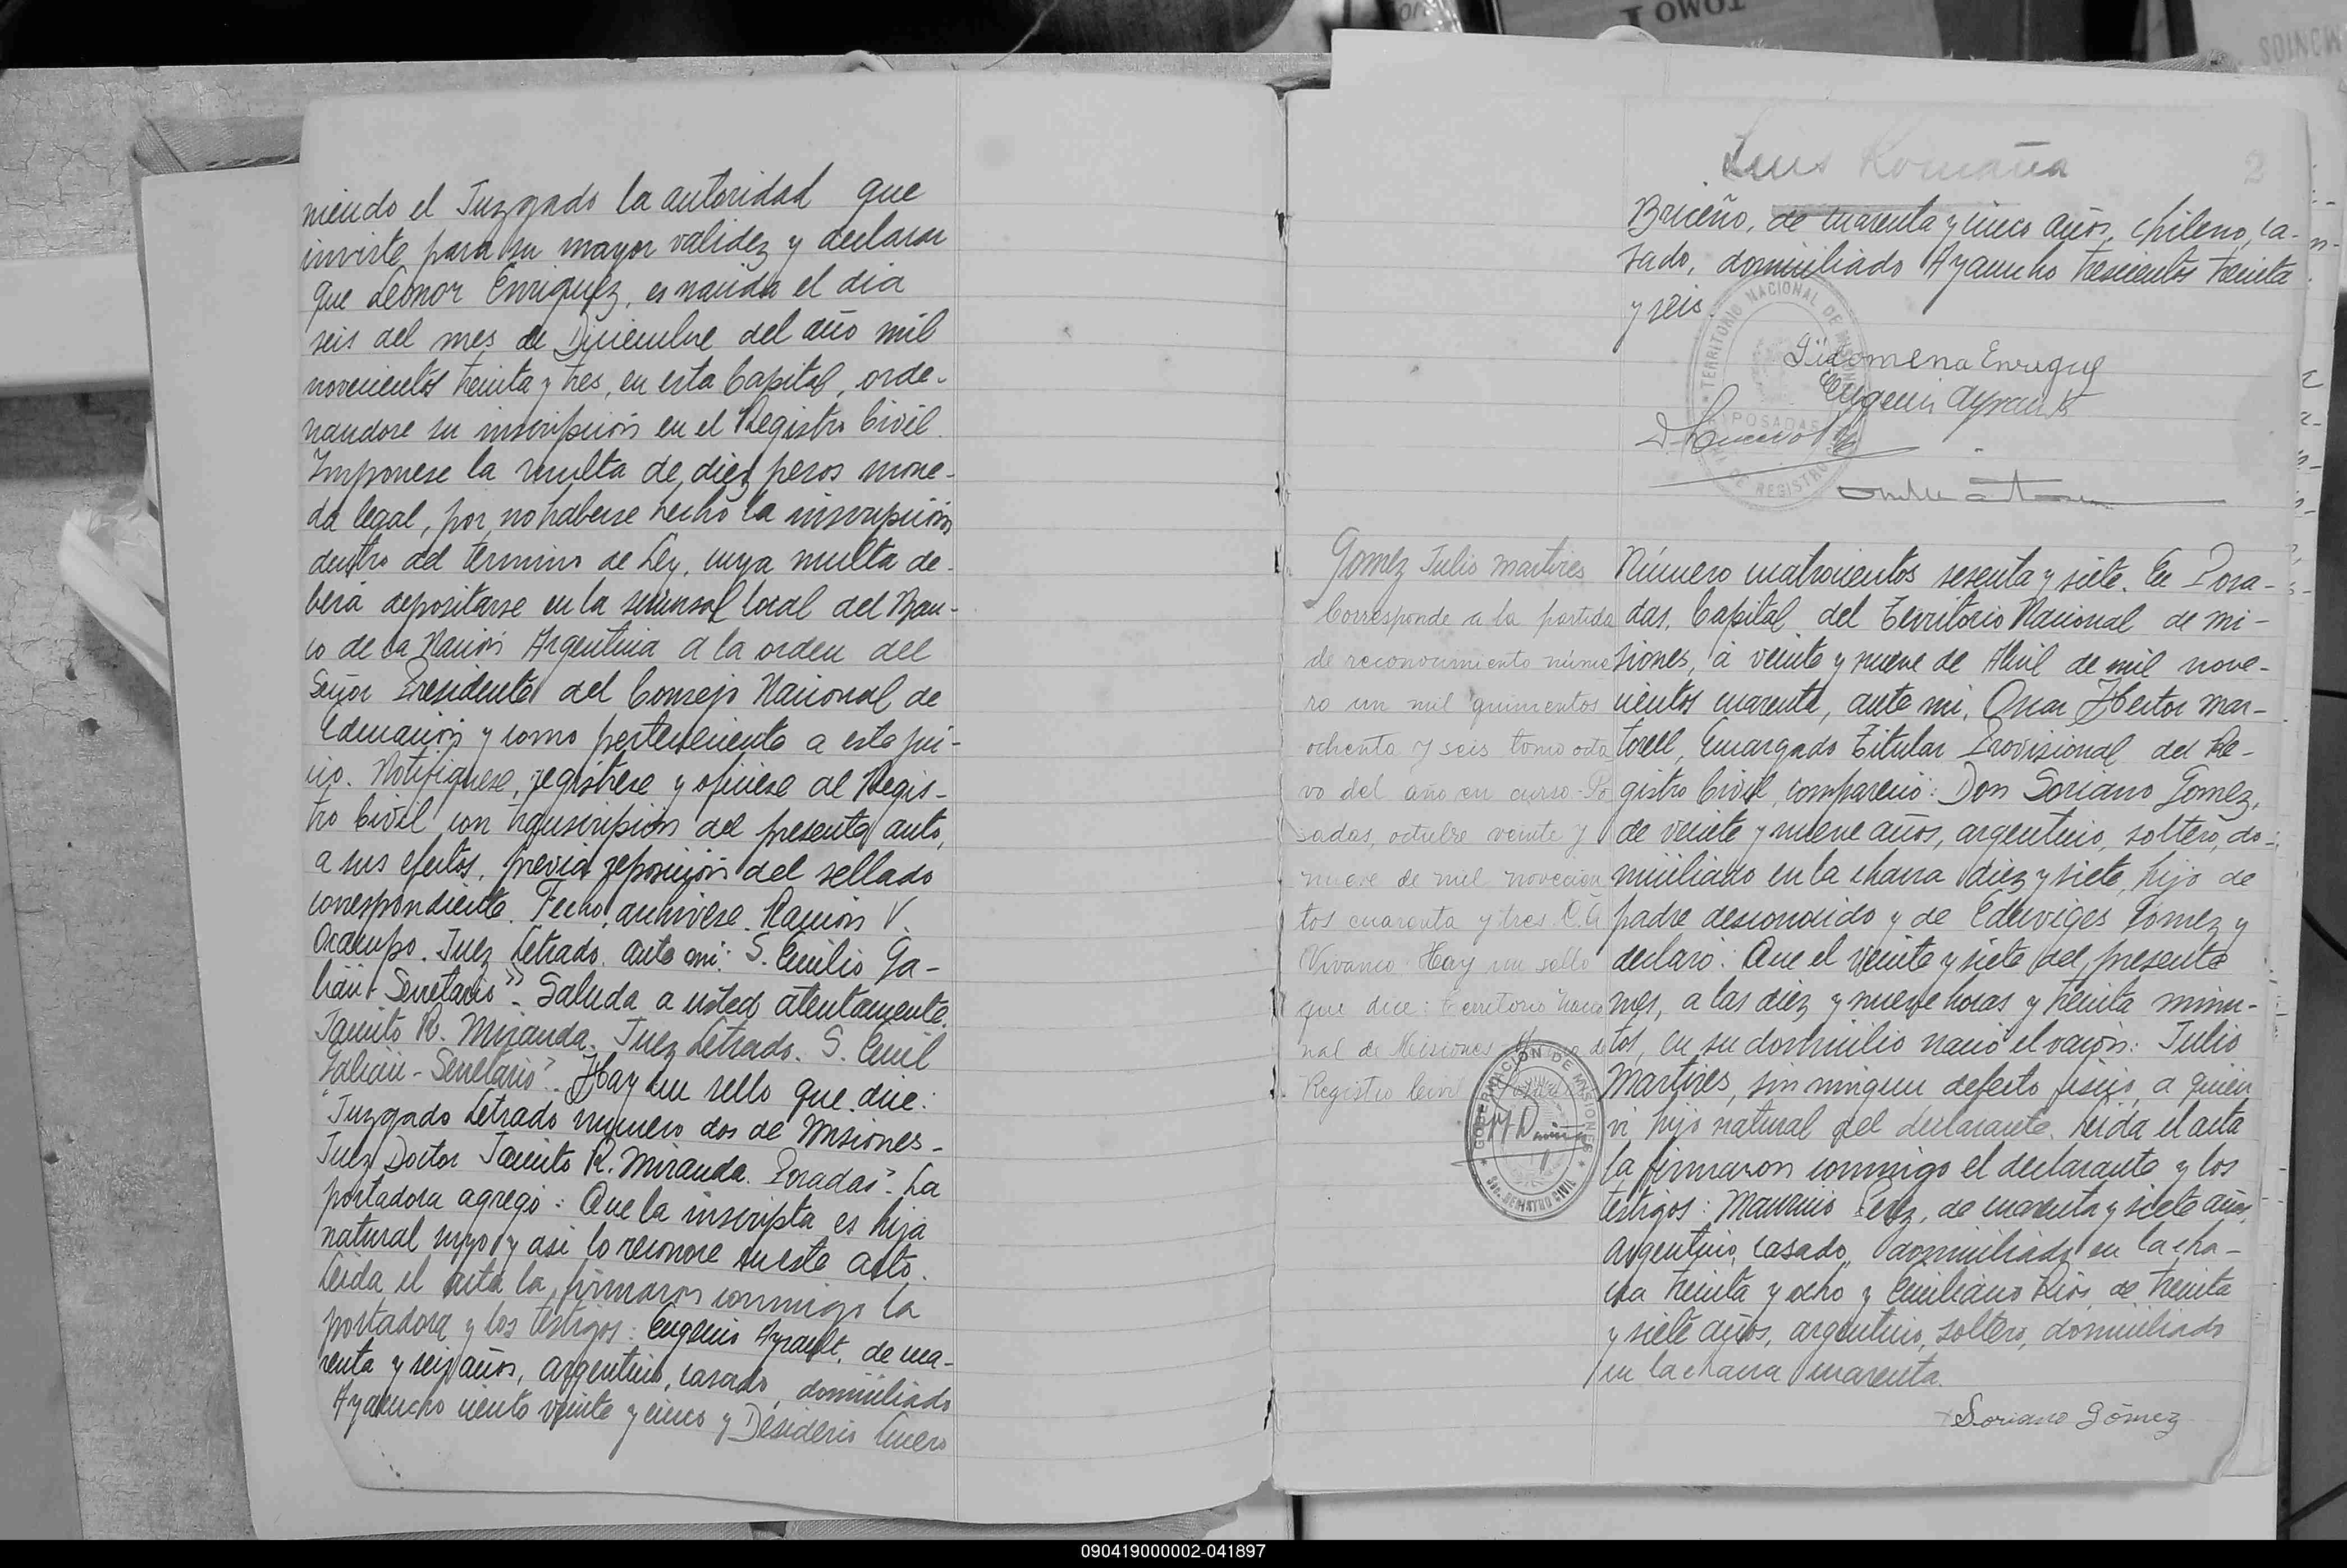 niendo el Juzgado la autoridad que
inviste para su mayor validez y declarar
que Leonor Enriquez, es nacida el dia
seis del mes de Diciembre del año mil
novecientos treinta y tres, en esta Capital, orde-
nandose su inscripción en el Registro Civil.
Imponese la multa de diez pesos mone-
da legal, por no haberse hecho la inscripción
dentro del termino de Ley, cuya multa de-
berá depositarse en la sucursal local del Ban-
co de la Nación Argentina a la orden del
Señor Presidente del Consejo Nacional de
Educación y como perteneciente a este jui-
cio. Notifiquese, registrese y oficiese al Regis-
tro Civil con trascripción del presente auto,
a sus efectos, previa reposición del sellado
correspondiente. Fecho, archivese. Ramón V.
Ocampo. Juez Letrado. ante mi: S. Emilio Ga-
lian Secretario". Saluda a usted atentamente.
Jacinto R. Miranda. Juez Letrado. S. Emil
Galian - Secretario". Hay un sello que dice:
"Juzgado Letrado numero dos de Misiones-
Juez Doctor Jacinto R. Miranda. Posadas". La
portadora agregó: Que la inscripta es hija
natural suya y asi lo reconoce en este acto.
Leida el acta la firmaron conmigo la
portadora y los testigos: Eugenio Ayrault, de cua-
renta y seis años, argentino, casado, domiciliado
Ayacucho ciento veinte y cinco y Desiderio Cuevo
Luis Romaña
2
Briceño, de cuarenta y cinco años, chileno, ca-
sado, domiciliado Ayacucho trescientos treinta
y seis.
TERRITORIO NACIONAL DE MISIONES
POSADAS
DE REGISTRO
Filomena Enrique
Eugenio Ayrault
Gomez Julio Martires
Corresponde a la partida
de reconocimiento núme
ro un mil quinientos
ochenta y seis tomo octa
vo del año en curso. Po
sadas, octubre veinte y
nueve de mil novecien
tos cuarenta y tres. C. A
Vivanco. Hay un sello
que dice: Territorio Nacio
nal de Misiones
Registro Civil
GOBERNACION DE MISIONES
REGISTRO CIVIL
Número cuatrocientos sesenta y siete. En Posa-
das, Capital del Territorio Nacional de Mi-
siones, á veinte y nueve de Abril de mil nove-
cientos cuarenta, ante mi, Oscar Hector Mar-
torell, Encargado Titular Provisional del Re-
gistro Civil, compareció: Don Soriano Gomez,
de veinte y nueve años, argentino, soltero, do-
miciliado en la chacra diez y siete, hijo de
padre desconocido y de Eduviges Gomez y
declaró: Que el veinte y siete del presente
mes, a las diez y nueve horas y treinta minu-
tos, en su domicilio nació el varón: Julio
Martires, sin ningun defecto fisico, a quien
vi hijo natural del declarante. Leida el acta
la firmaron conmigo el declarante y los
testigos: Mauricio Perez, de cuarenta y siete años,
argentino, casado, domiciliado en la cha-
cra treinta y ocho y Emiliano Rios, de treinta
y siete años, argentino, soltero, domiciliado
en la chacra cuarenta.
Soriano Gómez
090419000002-041897